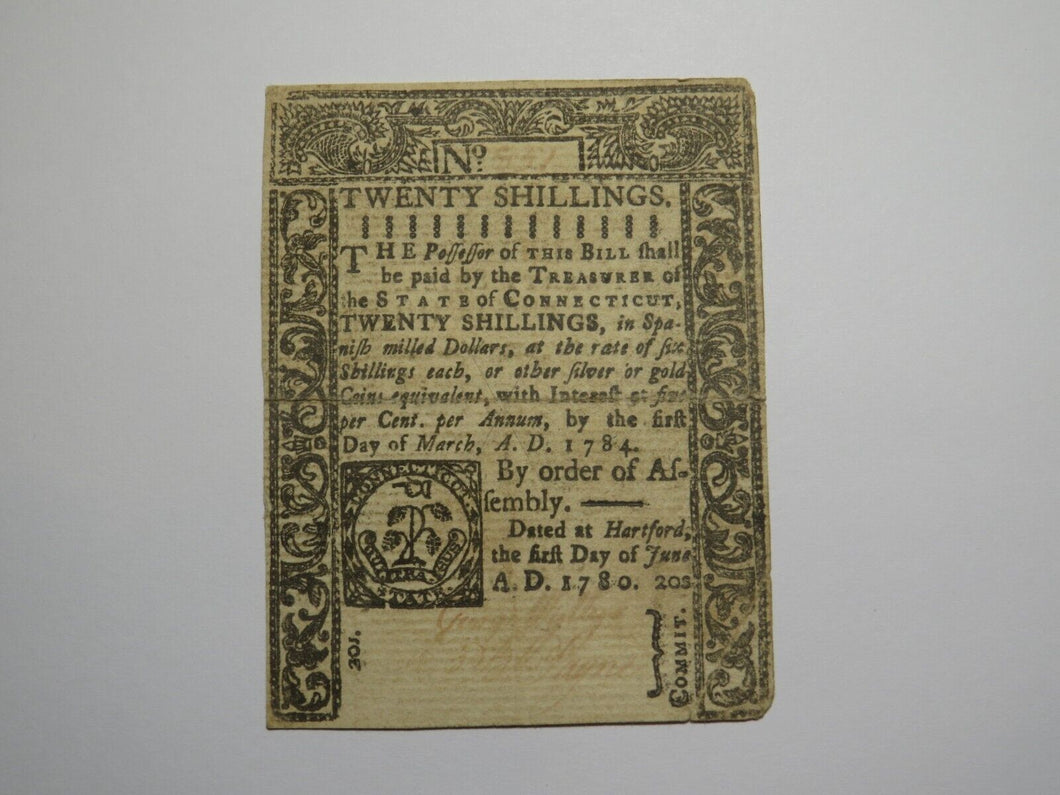 No.
TWENTY SHILLINGS.
THE Poſſeſſor of THIS BILL ſhall
be paid by the TREASURER of
the STATE of CONNECTICUT,
TWENTY SHILLINGS, in Spa-
niſh milled Dollars, at the rate of ſix
Shillings each, or other ſilver or gold
Coins equivalent, with Intereſt at five
per Cent. per Annum, by the firſt
Day of March, A. D. 1784.
By order of Aſ-
ſembly.
Dated at Hartford,
the firſt Day of June
A. D. 1780. 20s
CONNECTICUT.
STATE.
20s.
COMMIT.